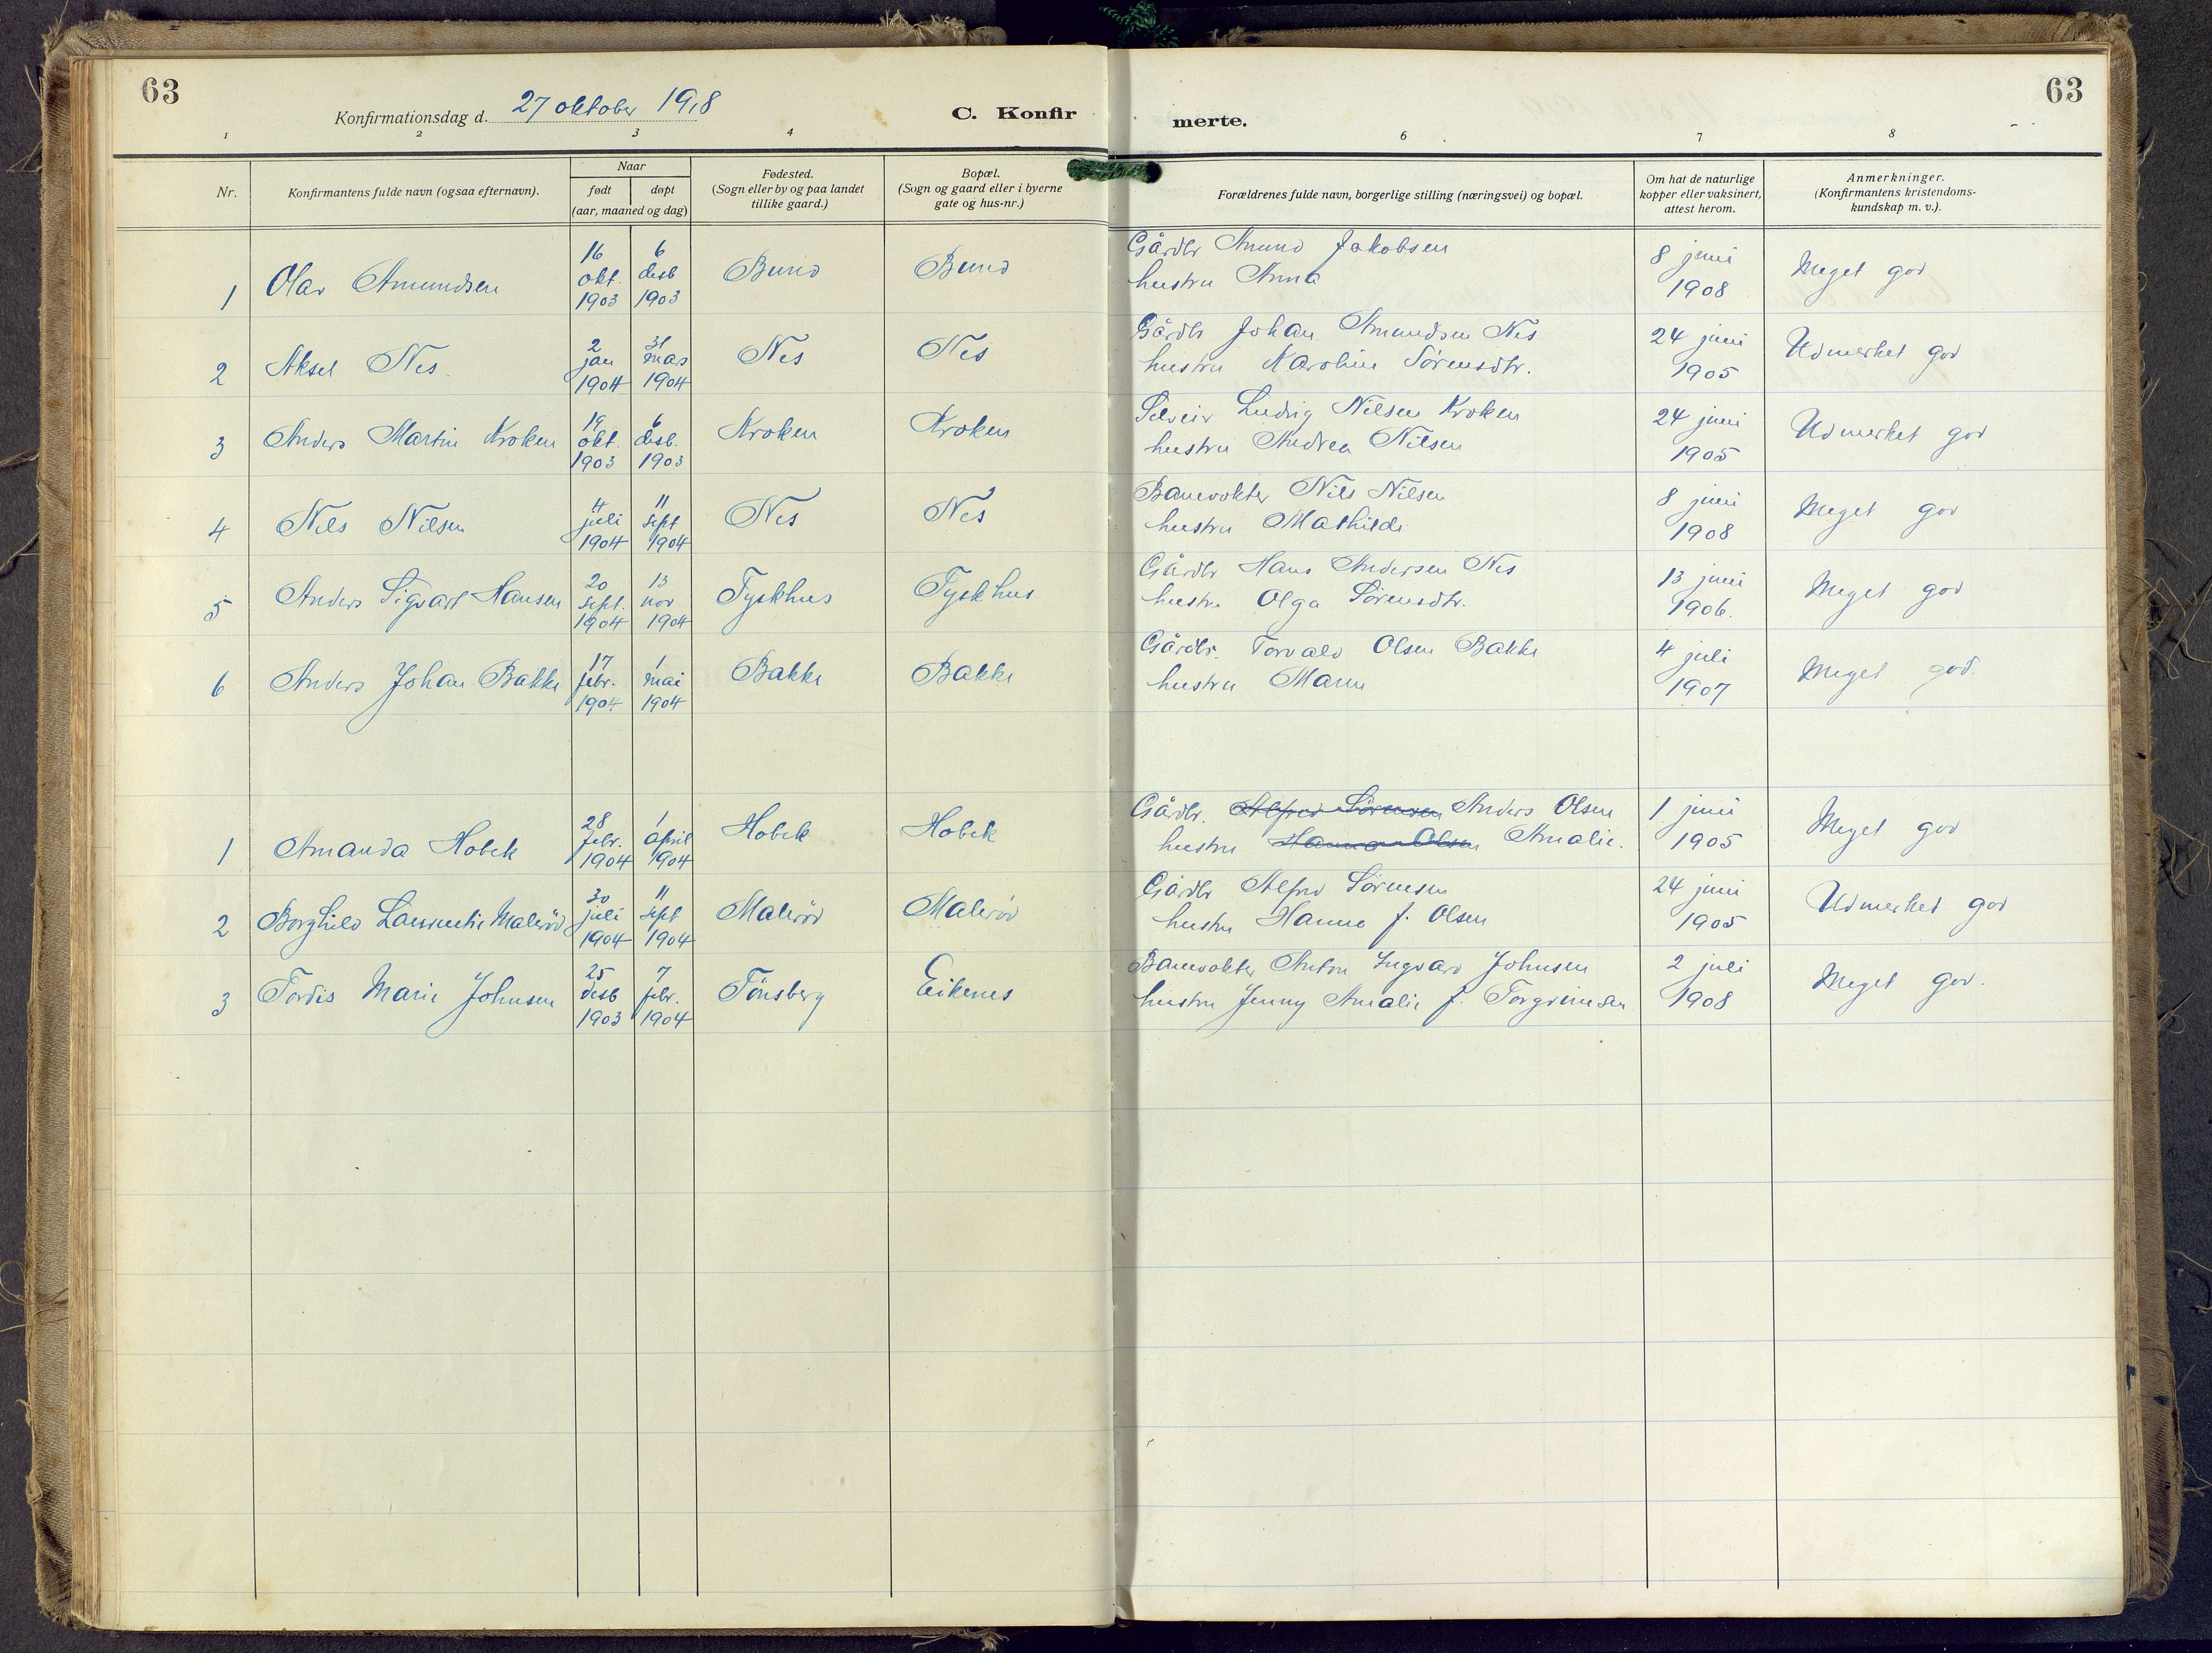 63
Konfirmationsdag d. 27 oktober 1918
C. Konfir
merte.
63
1 2 3 4 6 7 8
Nr.
Konfirmantens fulde navn (ogsaa efternavn).
Naar
født døpt
(aar, maaned og dag)
Fødested.
(Sogn eller by og paa landet
tillike gaard.)
Bopæl.
(Sogn og gaard eller i byerne
gate og hus-nr.)
Forældrenes fulde navn, borgerlige stilling (næringsvei) og bopæl.
Om hat de naturlige
kopper eller vaksinert,
attest herom.
Anmerkninger.
(Konfirmantens kristendoms-
kundskap m. v.).
16 6 Gårdbr Amund Jakobsen 8 juni
1 Olav Amundsen okt. desb Bund Bund hustru Anna Meget god
1903 1903 1908
2 31 Gårdbr Johan Amundsen Nes 24 juni
2 Aksel Nes. jan mars Nes Nes hustru Karoline Sørensdtr. Udmerket god
1904 1904 1905
19 6 Selveier Ludvig Nilsen Kroken 24 juni
3 Anders Martin Kroken okt. desb. Kroken Kroken hustru Andrea Nilsen Udmerket god
1903 1903 1905
4 11 Banevokter Nils Nilsen 8 juni
4 Nils Nilsen juli sept Nes Nes hustru Mathilde Meget god
1904 1904 1908
20 13 Gårdbr Hans Andersen Nes 13 juni
5 Anders Sigvart Hansen sept. nov Tyskhus Tyskhus hustru Olga Sørensdtr. Meget god
1904 1904 1906.
17 1 Gårdbr. Torvald Olsen Bakke 4 juli
6 Anders Johan Bakke febr. mai Bakke Bakke hustru Maren Meget god.
1904 1904 1907
28 1 Gårdbr. Alfred Sørensen Anders Olsen 1 juni
1 Amanda Hobek febr. april Hobek Hobek hustru Hanna Olsen Amalie. Meget god
1904 1904 1905
30 11 Gårdbr Alfred Sørensen 24 juni
2 Borghild Laurentie Malerød juli sept Malerød Malerød hustru Hanna f. Olsen Udmerket god
1904 1904 1905
25 7 Banevokter Anton Ingvard Johnsen 2 juli
3 Tordis Marie Johnsen desb febr. Tönsberg Eikenes hustru Jenny Amalie f. Torgrimsen Meget god.
1903 1904 1908